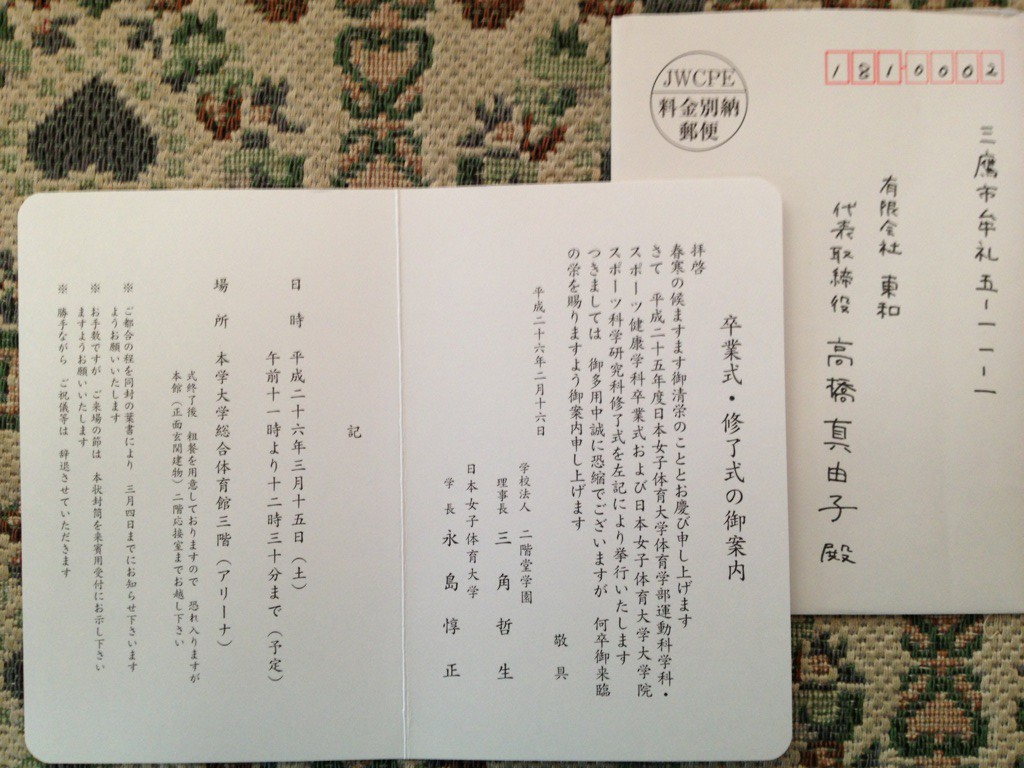 卒業式・修了式の御案内
拝啓
春寒の候ますます御清栄のこととお慶び申し上げます
さて 平成二十五年度日本女子体育大学体育学部運動科学科・
スポーツ健康学科卒業式および日本女子体育大学大学院
スポーツ科学研究科修了式を左記により挙行いたします
つきましては 御多用中誠に恐縮でございますが 何卒御来臨
の栄を賜りますよう御案内申し上げます
敬具
平成二十六年二月十六日
学校法人 二階堂学園
理事長 三角哲生
日本女子体育大学
学長 永島惇正
記
日時 平成二十六年三月十五日(土)
午前十一時より十二時三十分まで(予定)
場所 本学大学総合体育館三階(アリーナ)
式終了後 粗餐を用意しておりますので 恐れ入りますが
本館(正面玄関建物)二階応接室までお越し下さい
※ ご都合の程を同封の葉書により 三月四日までにお知らせ下さいます
ようお願いいたします
※ お手数ですが ご来場の節は 本状封筒を来賓用受付にお示し下さい
ますようお願いいたします
※ 勝手ながら ご祝儀等は 辞退させていただきます
JWCPE
料金別納
郵便
1810002
三鷹市牟礼五-一一-一
有限会社 東和
代表取締役 高橋真由子殿